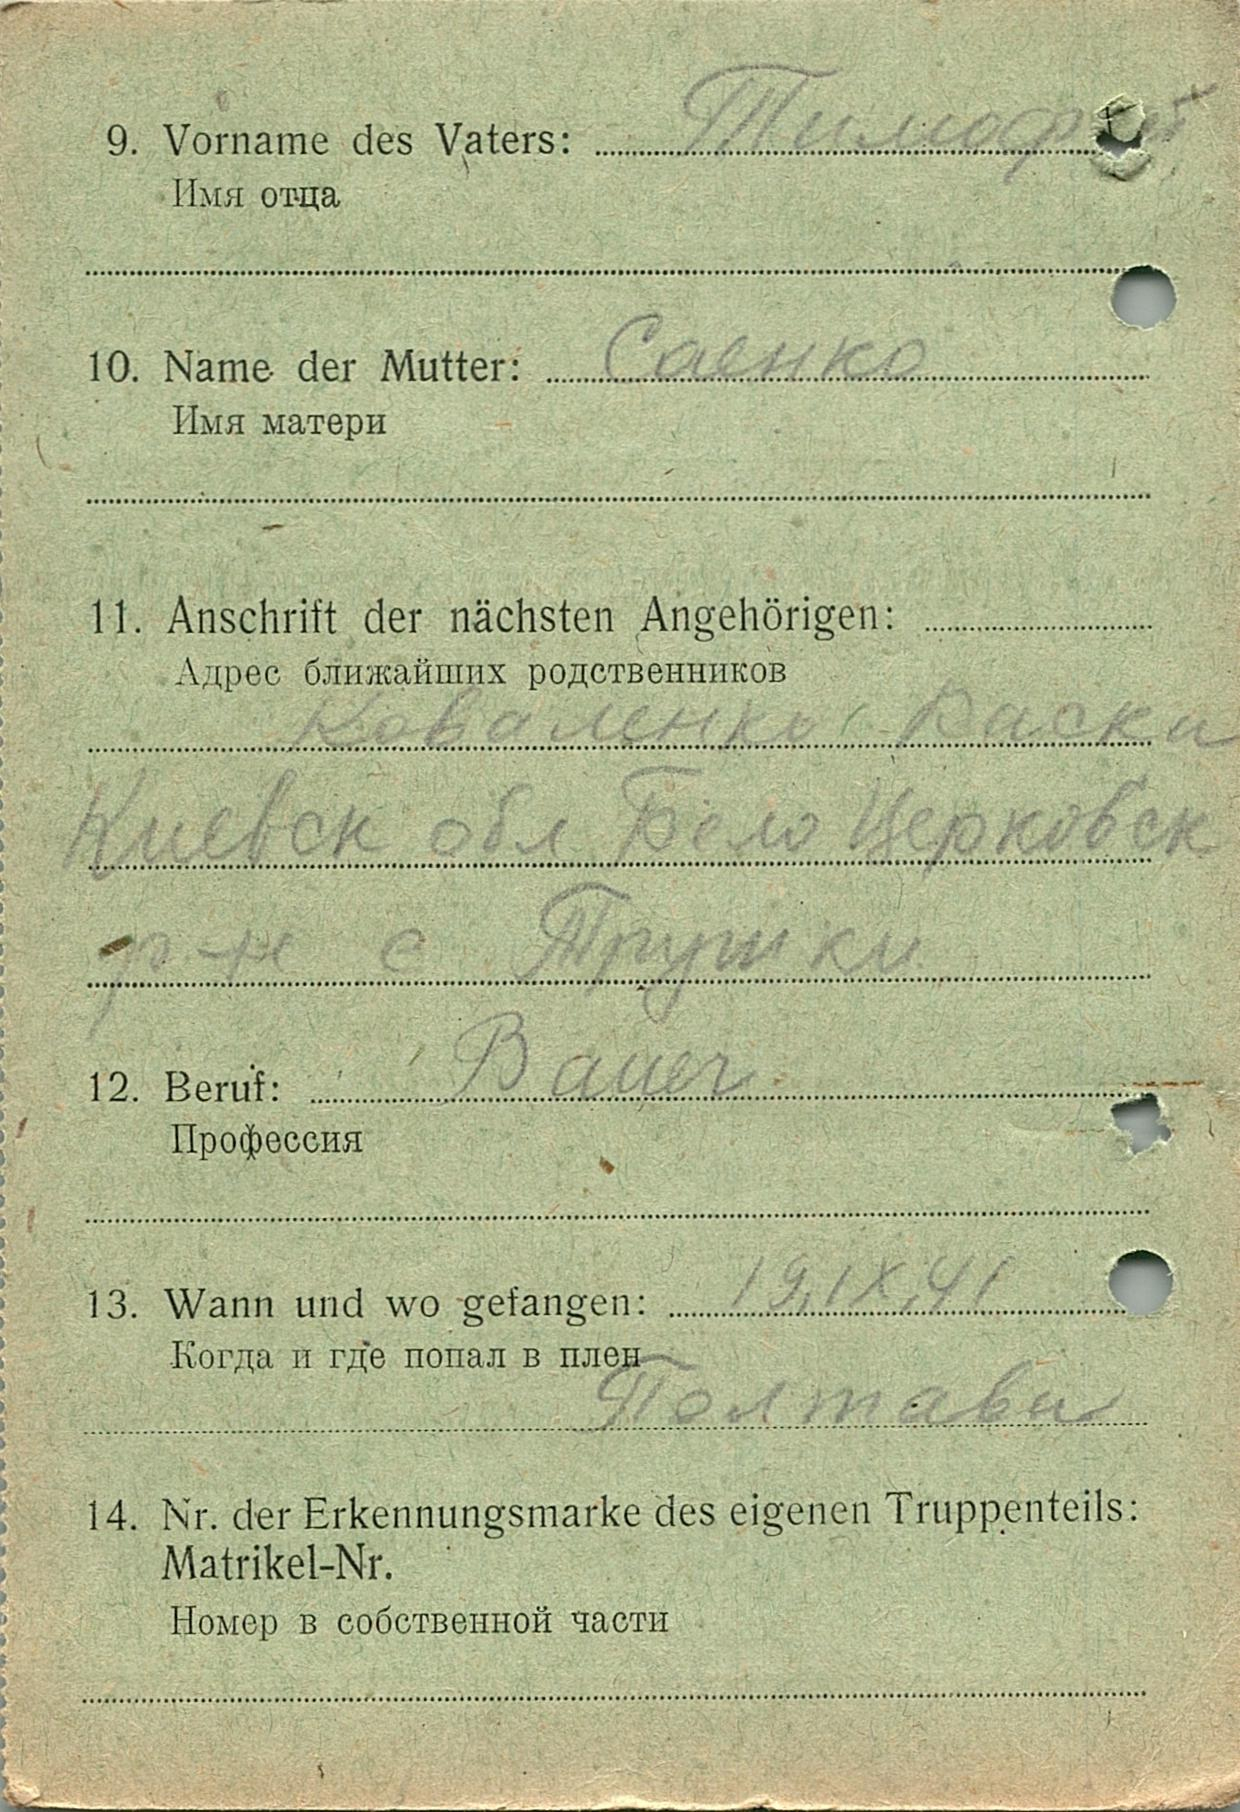 9. Vorname des Vaters: Тимофей
Имя отца
10. Name der Mutter: Саенко
Имя матери
11. Anschrift der nächsten Angehörigen:
Адрес ближайших родственников
Коваленко
Киевск обл Бело Церковск
р-н с Трушки
12. Beruf: Bauer
Профессия
13. Wann und wo gefangen: 19.IX.41
Когда и где попал в плен
Полтави
14. Nr. der Erkennungsmarke des eigenen Truppenteils:
Matrikel-Nr.
Номер в собственной части